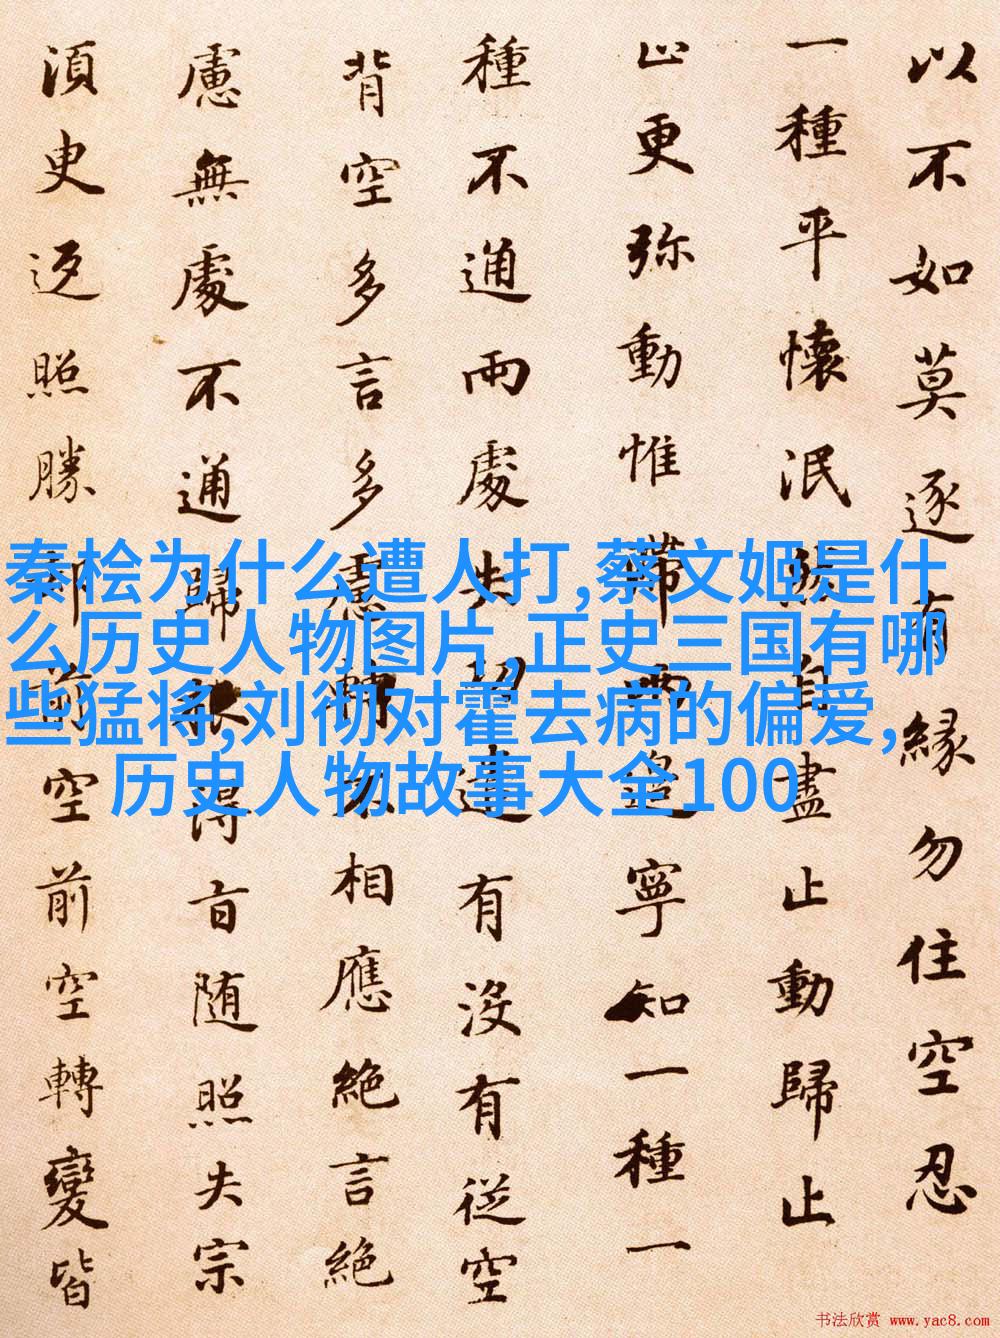 以不如莫逐有緣勿住空忍
一種平懷泯然自盡止動歸止
止更弥動惟滯兩邊寧知一種一
種不通兩處失功遣有沒有從空
背空多言多慮轉不相應絕言絕
慮無處不通歸根得旨随照失宗
須臾返照勝却前空前空轉變皆
秦桧为什么遭人打,蔡文姬是什
么历史人物图片,正史三国有哪
些猛将,刘彻对霍去病的偏爱,
历史人物故事大全100
书法欣赏 www.yac8.com